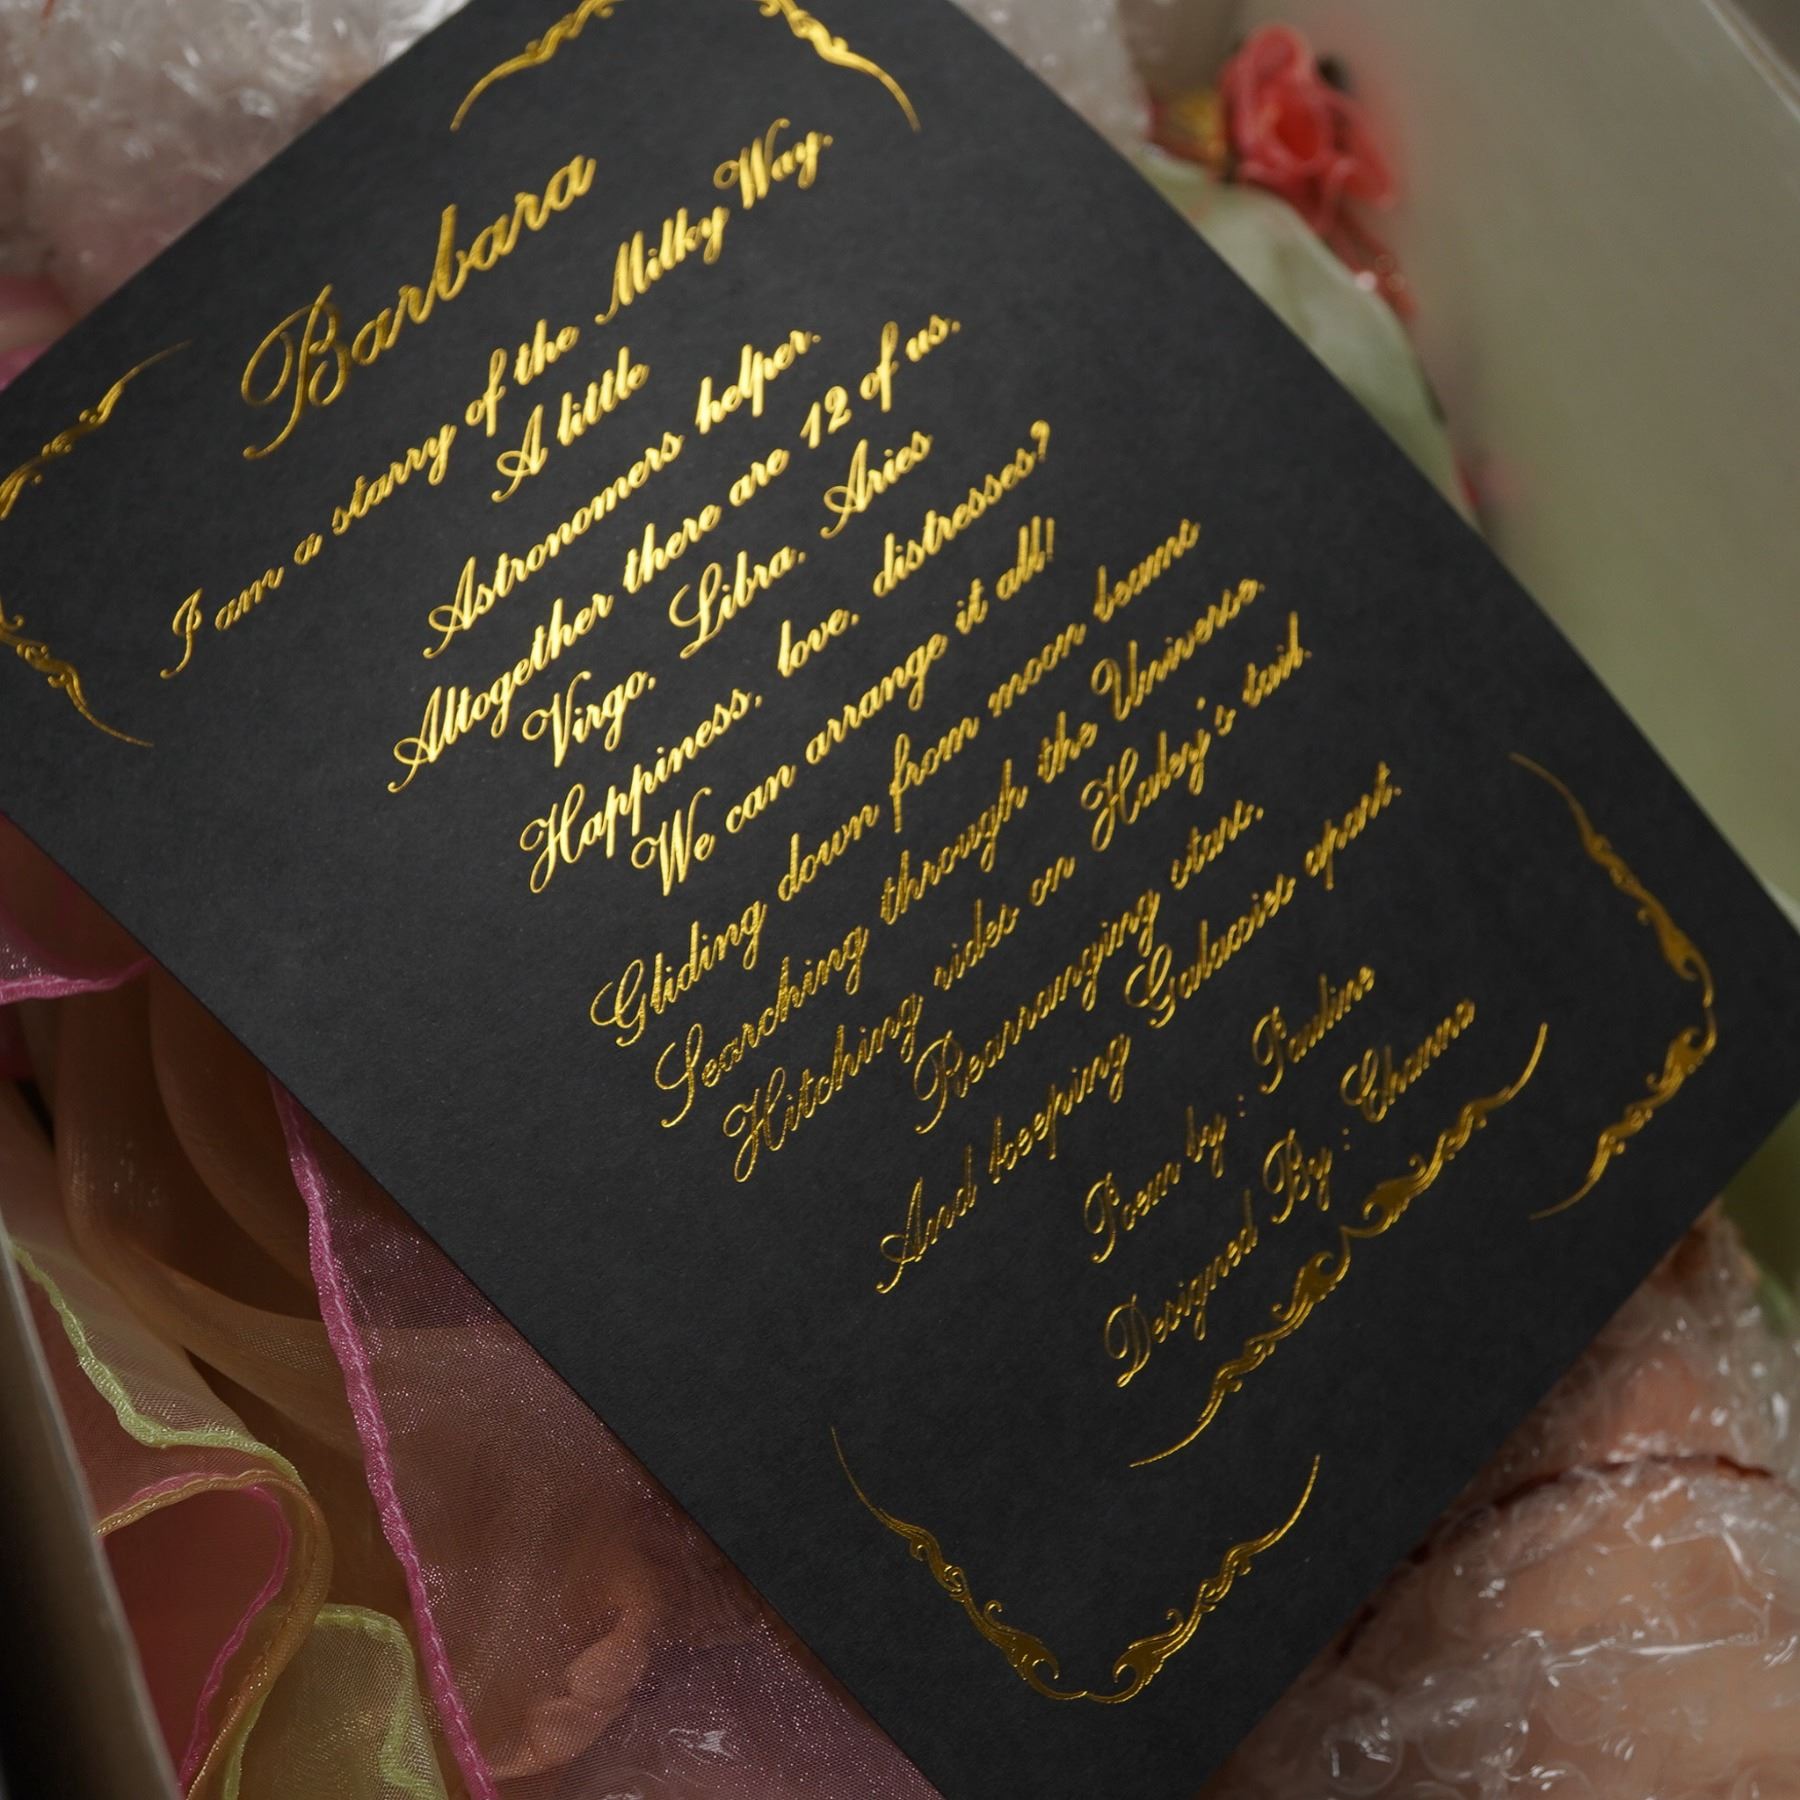 Barbara
I am a starry of the Milky Way.
A little
Astronomers helper.
Altogether there are 12 of us,
Virgo, Libra, Aries
Happiness, love, distresses?
We can arrange it all!
Gliding down from moon beams
Searching through the Universe.
Hitching rides on Haley's tail.
Rearranging stars,
And keeping Galaxies apart.
Poem by: Pauline
Designed By: Channa